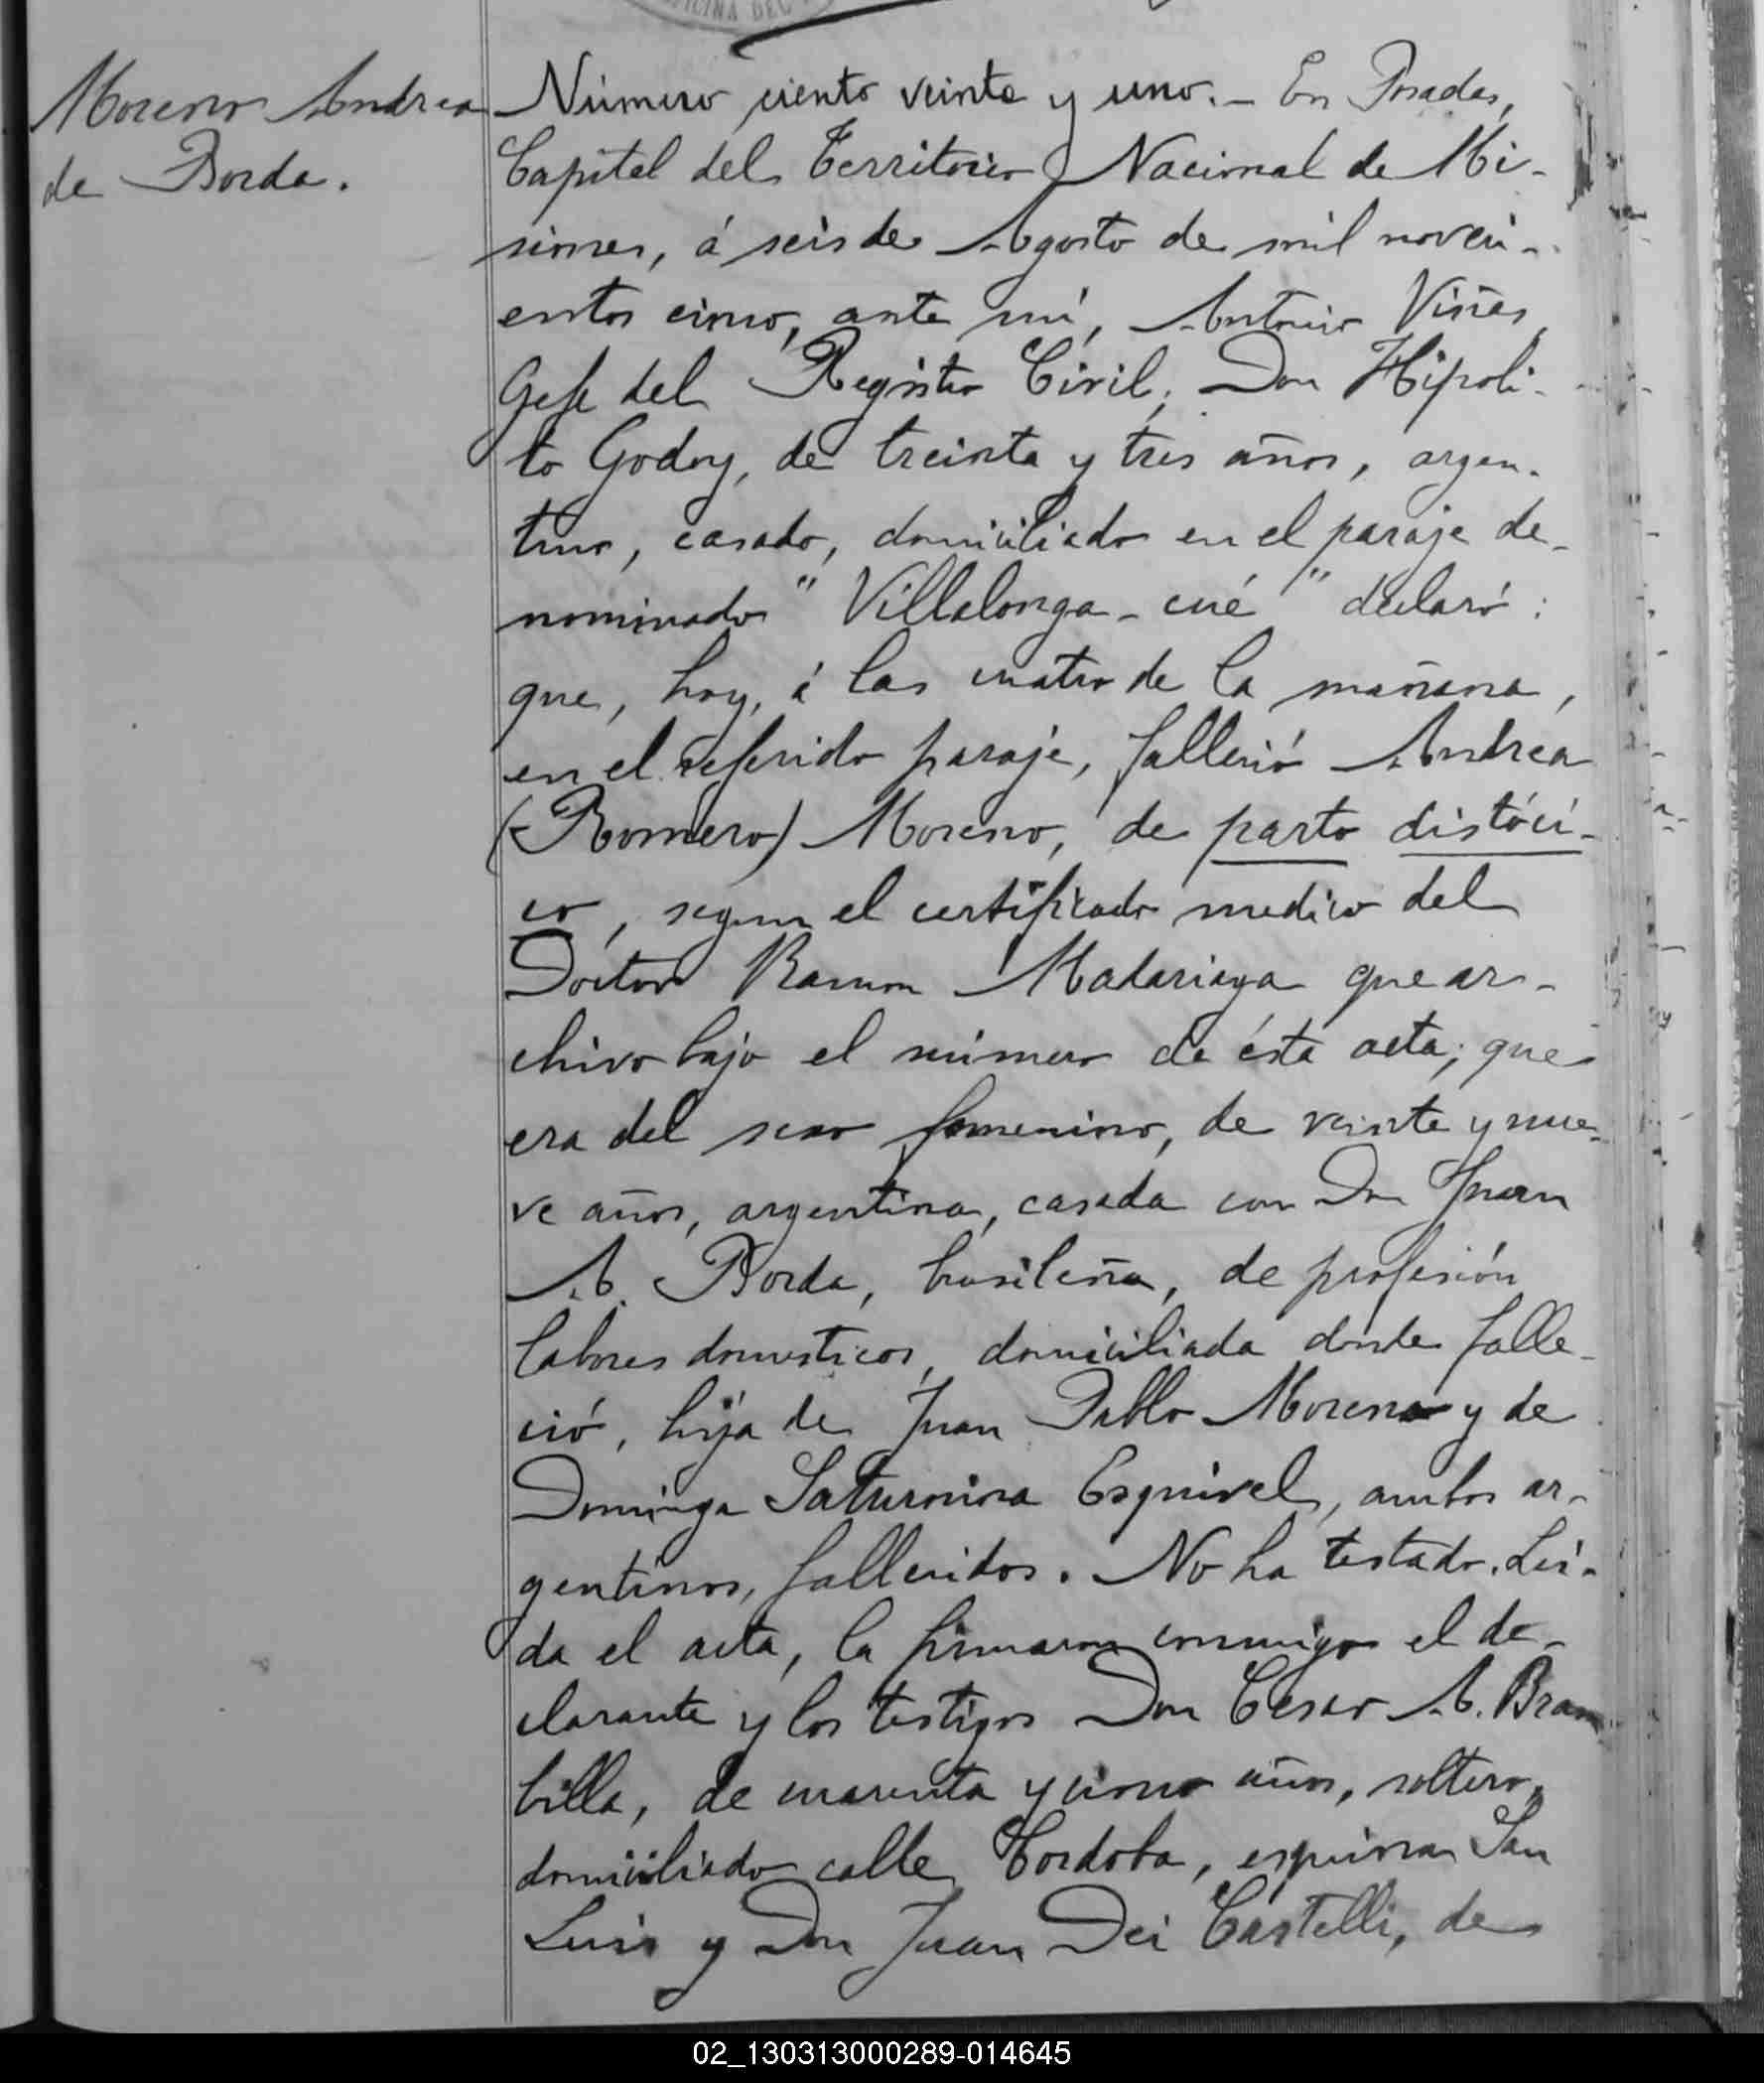 OFICINA DEL
Moreno Andrea
de Borda.
Número ciento veinte y uno.- En Posadas,
Capital del Territorio Nacional de Mi-
siones, á seis de Agosto de mil noveci-
entos cinco, ante mí, Antonio Viñas,
Gefe del Registro Civil, Don Hipoli-
to Godoy, de treinta y tres años, argen-
tino, casado, domiciliado en el paraje de-
nominado "Villalonga-cué" declaró:
que, hoy, á las cuatro de la mañana,
en el referido paraje, falleció Andrea
(Romero) Moreno, de parto distóci-
co, segun el certificado medico del
Dóctor Ramon Madariaga que ar-
chivo bajo el número de ésta acta; que
era del sexo femenino, de veinte y nue-
ve años, argentina, casada con Don Juan
A. Borda, brasileña, de profesión
labores domesticos, domiciliada donde falle-
ció, hija de Juan Pablo Moreno y de
Dominga Saturnina Esquivel, ambos ar-
gentinos, fallecidos. No ha testado. Lei-
da el acta, la firmaron conmigo el de-
clarante y los testigos Don Cesar A. Bram
billa, de cuarenta y cinco años, soltero,
domiciliado calle Cordoba, esquina San
Luis y Don Juan Dei Castelli, de
02_130313000289-014645